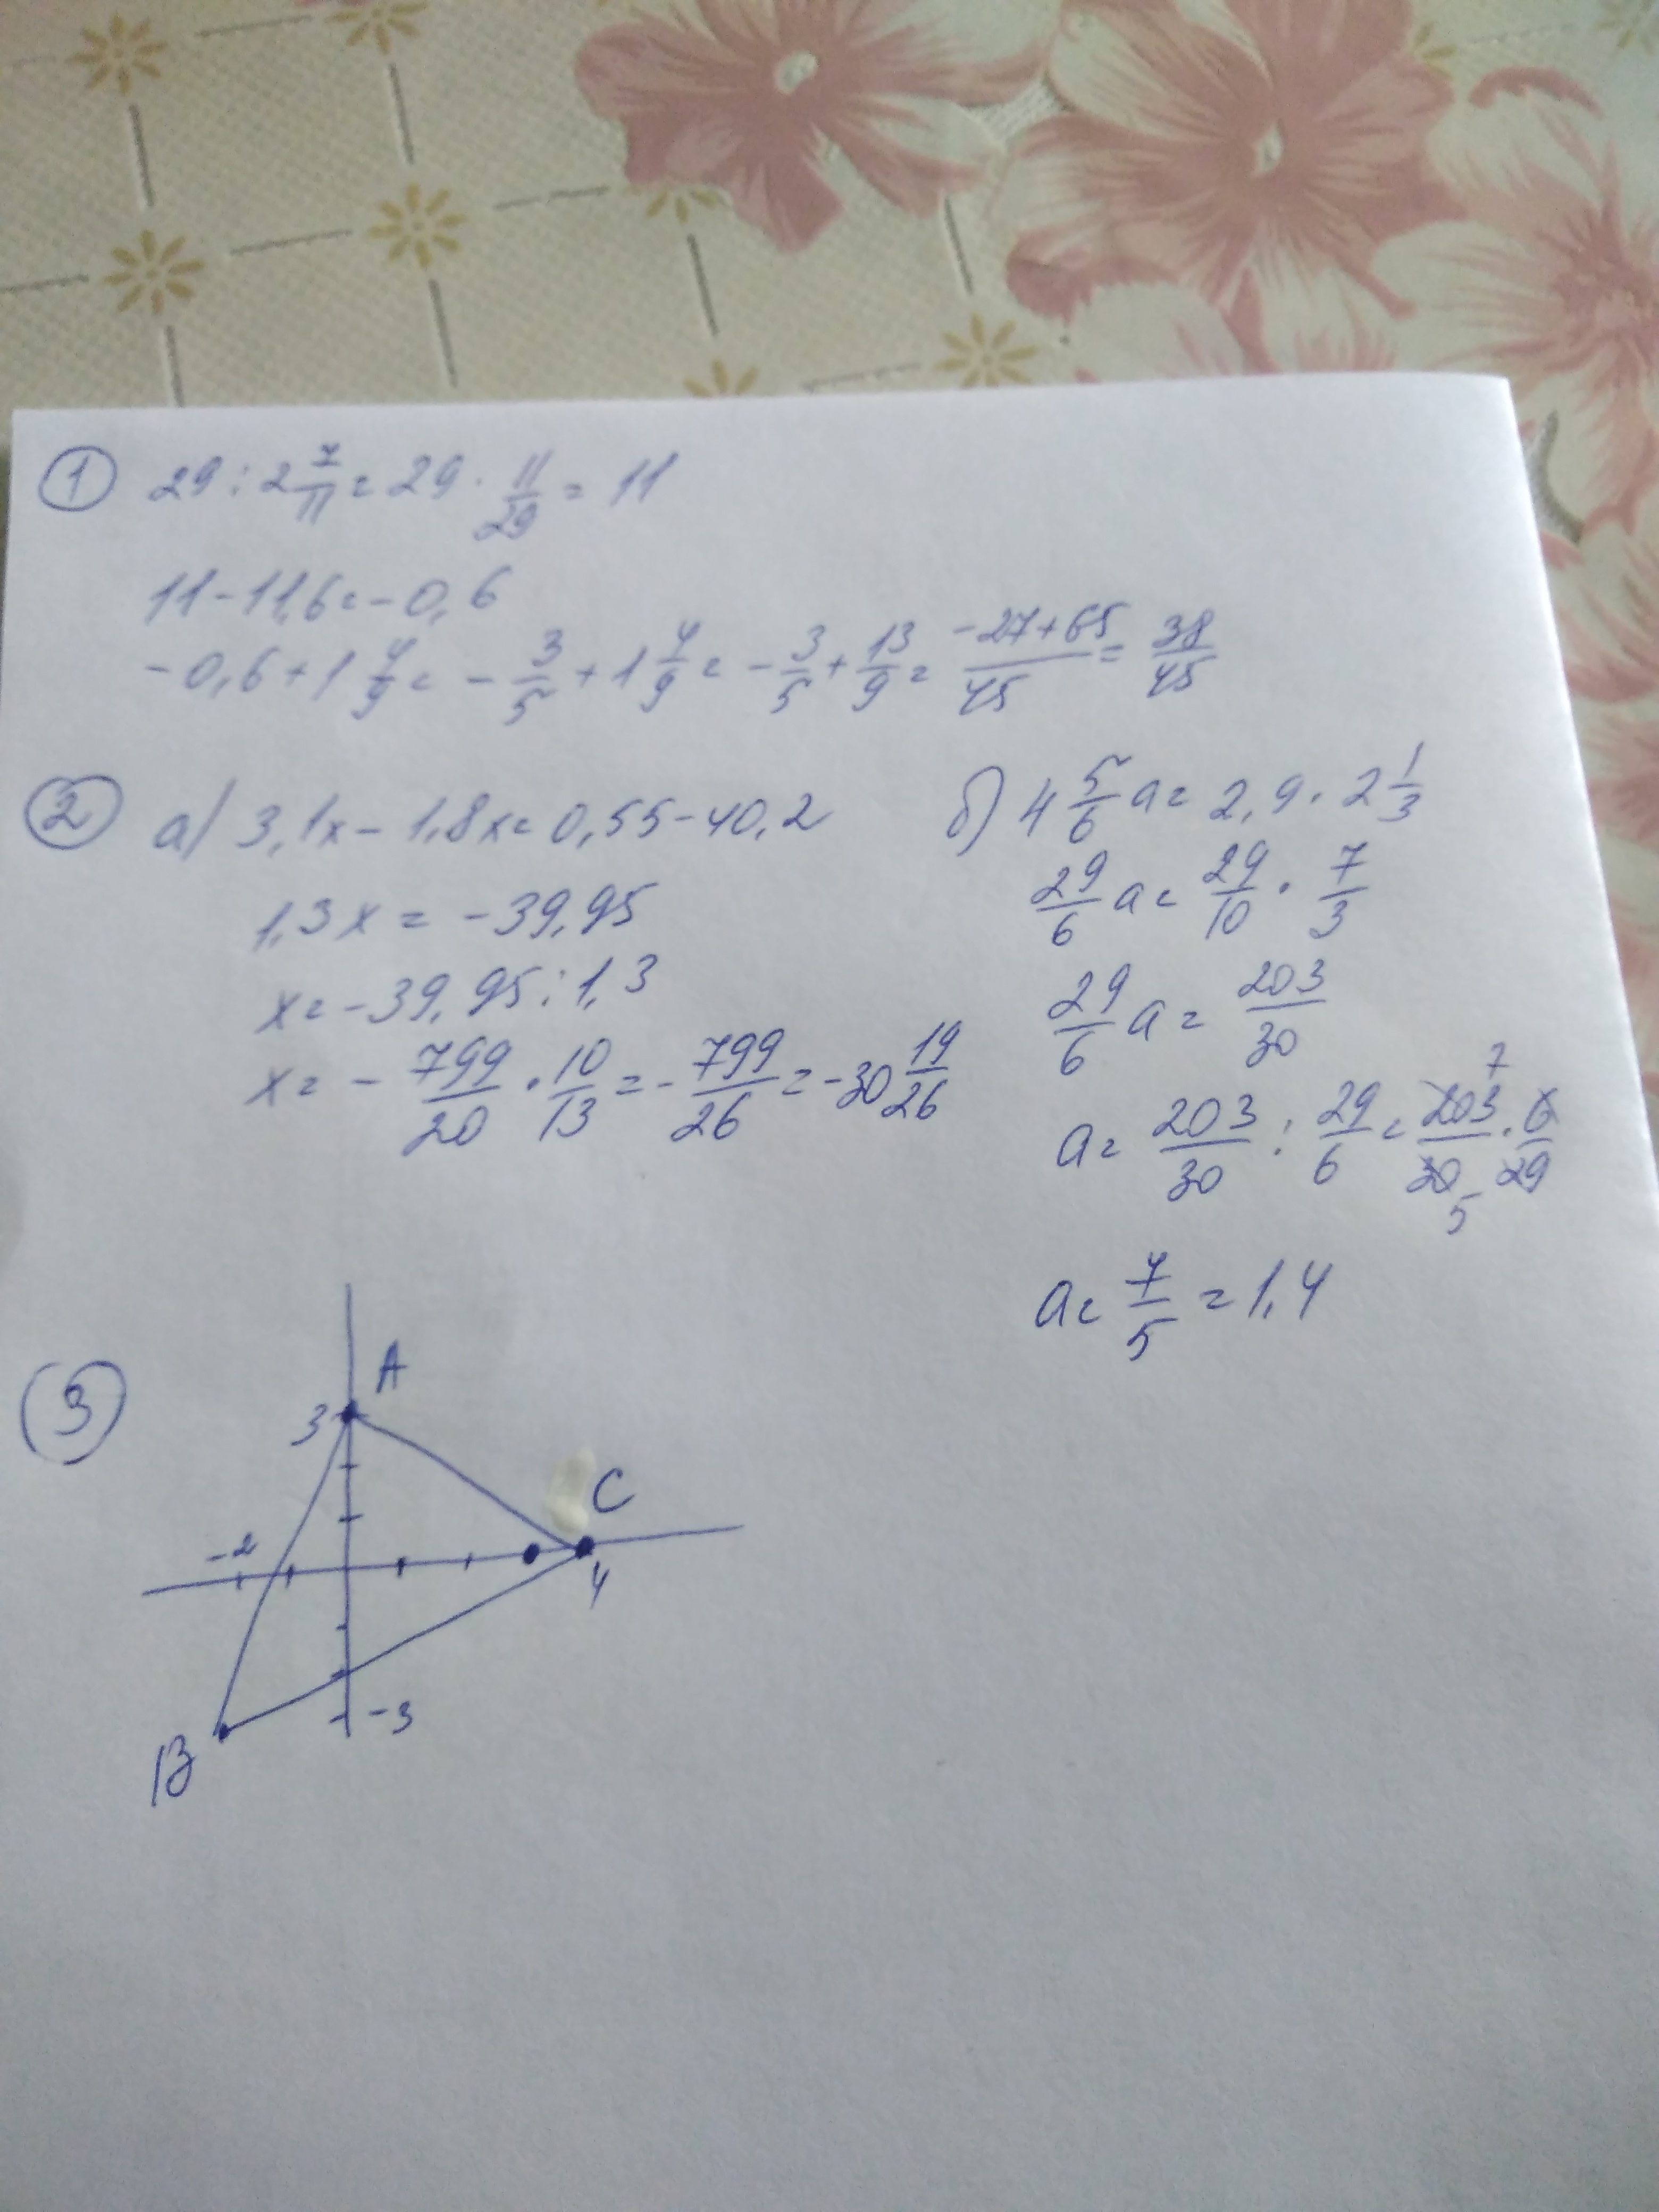 ① 29 : 2 7/11 = 29 · 11/29 = 11
11 - 11,6 = -0,6
-0,6 + 1 4/9 = -3/5 + 1 4/9 = -3/5 + 13/9 = (-27+65)/45 = 38/45
② а) 3,1x - 1,8x = 0,55 - 40,2
1,3x = -39,95
x = -39,95 : 1,3
x = -799/20 · 10/13 = -799/26 = -30 19/26
б) 4 5/6 a = 2,9 · 2 1/3
29/6 a = 29/10 · 7/3
29/6 a = 203/30
7
a = 203/30 : 29/6 = 203/30 · 6/29
5
a = 7/5 = 1,4
③
A
3
C
-2
4
-3
B